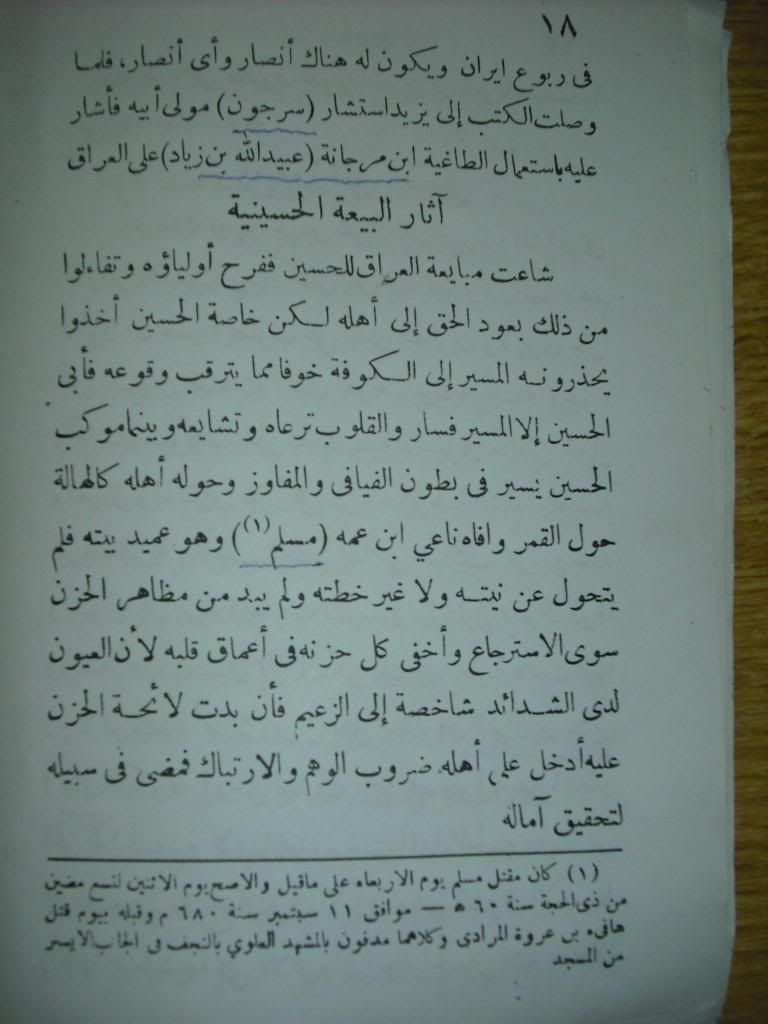 ١٨
فى ربوع ايران ويكون له هناك أنصار وأى أنصار، فلما
وصلت الكتب إلى يزيد استشار (سرجون) مولى أبيه فأشار
عليه باستعمال الطاغية ابن مرجانة (عبيدالله بن زياد) على العراق
آثار البيعة الحسينية
شاعت مبايعة العراق للحسين ففرح أولياؤه وتفاءلوا
من ذلك بعود الحق إلى أهله لكن خاصة الحسين أخذوا
يحذرونه المسير إلى الكوفة خوفا مما يترقب وقوعه فأبى
الحسين إلا المسير فسار والقلوب ترعاه وتشايعه وبينما موكب
الحسين يسير فى بطون الفيافى والمفاوز وحوله أهله كالهالة
حول القمر وافاه ناعي ابن عمه (مسلم(١)) وهو عميد بيته فلم
يتحول عن نيته ولا غير خطته ولم يبد من مظاهر الحزن
سوى الاسترجاع وأخفى كل حزنه فى أعماق قلبه لأن العيون
لدى الشدائد شاخصة إلى الزعيم فأن بدت لائحة الحزن
عليه أدخل على أهله ضروب الوهم والارتباك فمضى فى سبيله
لتحقيق آماله
(١) كان مقتل مسلم يوم الاربعاء على ماقيل والاصح يوم الاثنين لتسع مضين
من ذى الحجة سنة ٦٠ ه — موافق ١١ سبتمبر سنة ٦٨٠ م وقبله بيوم قتل
هافىء بن عروة المرادى وكلاهما مدفون بالمشهد العلوي بالنجف فى الجانب الايسر
من المسجد